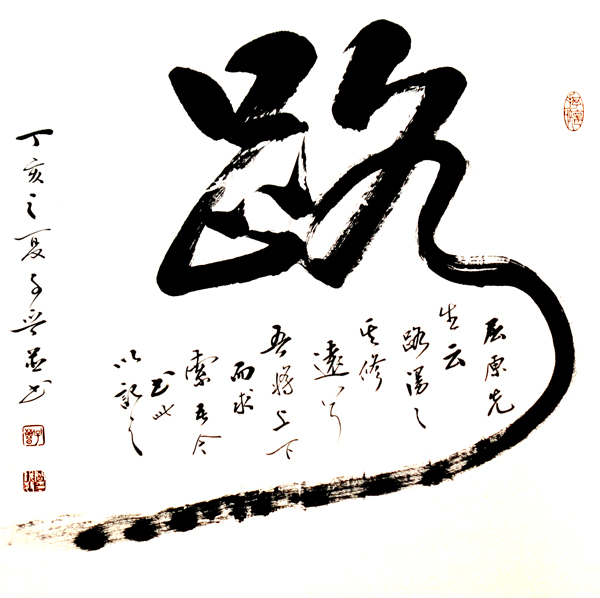 路
屈原先
生云
路漫々
其修
遠兮
吾將上下
而求
索吾今
書此
以記之
丁亥之夏子興並書